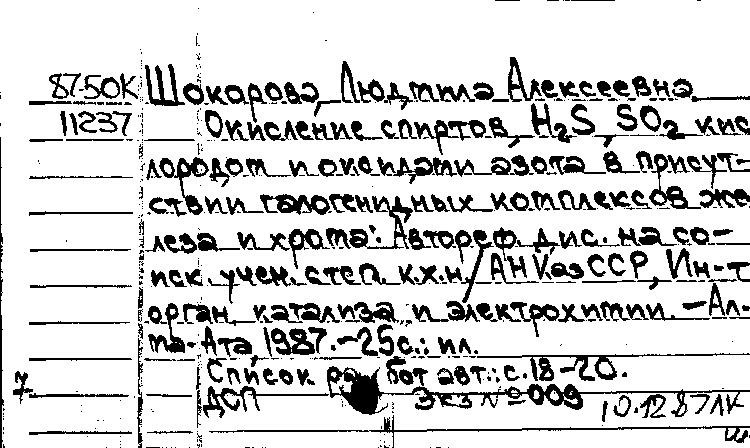 87-50К Шокорова, Людмила Алексеевна
11237 Окисление спиртов, H₂S, SO₂ кис
лородом и оксидами азота в присут-
ствии галогенидных комплексов же
леза и хрома: Автореф. дис. на со-
иск. учен. степ. к.х.н. / АН КазССР, Ин-т
орган. катализа и электрохимии. - Ал-
ма-Ата, 1987. - 25с.: ил.
Список работ авт.: с.18-20.
ДСП Экз № 009 10.12.87